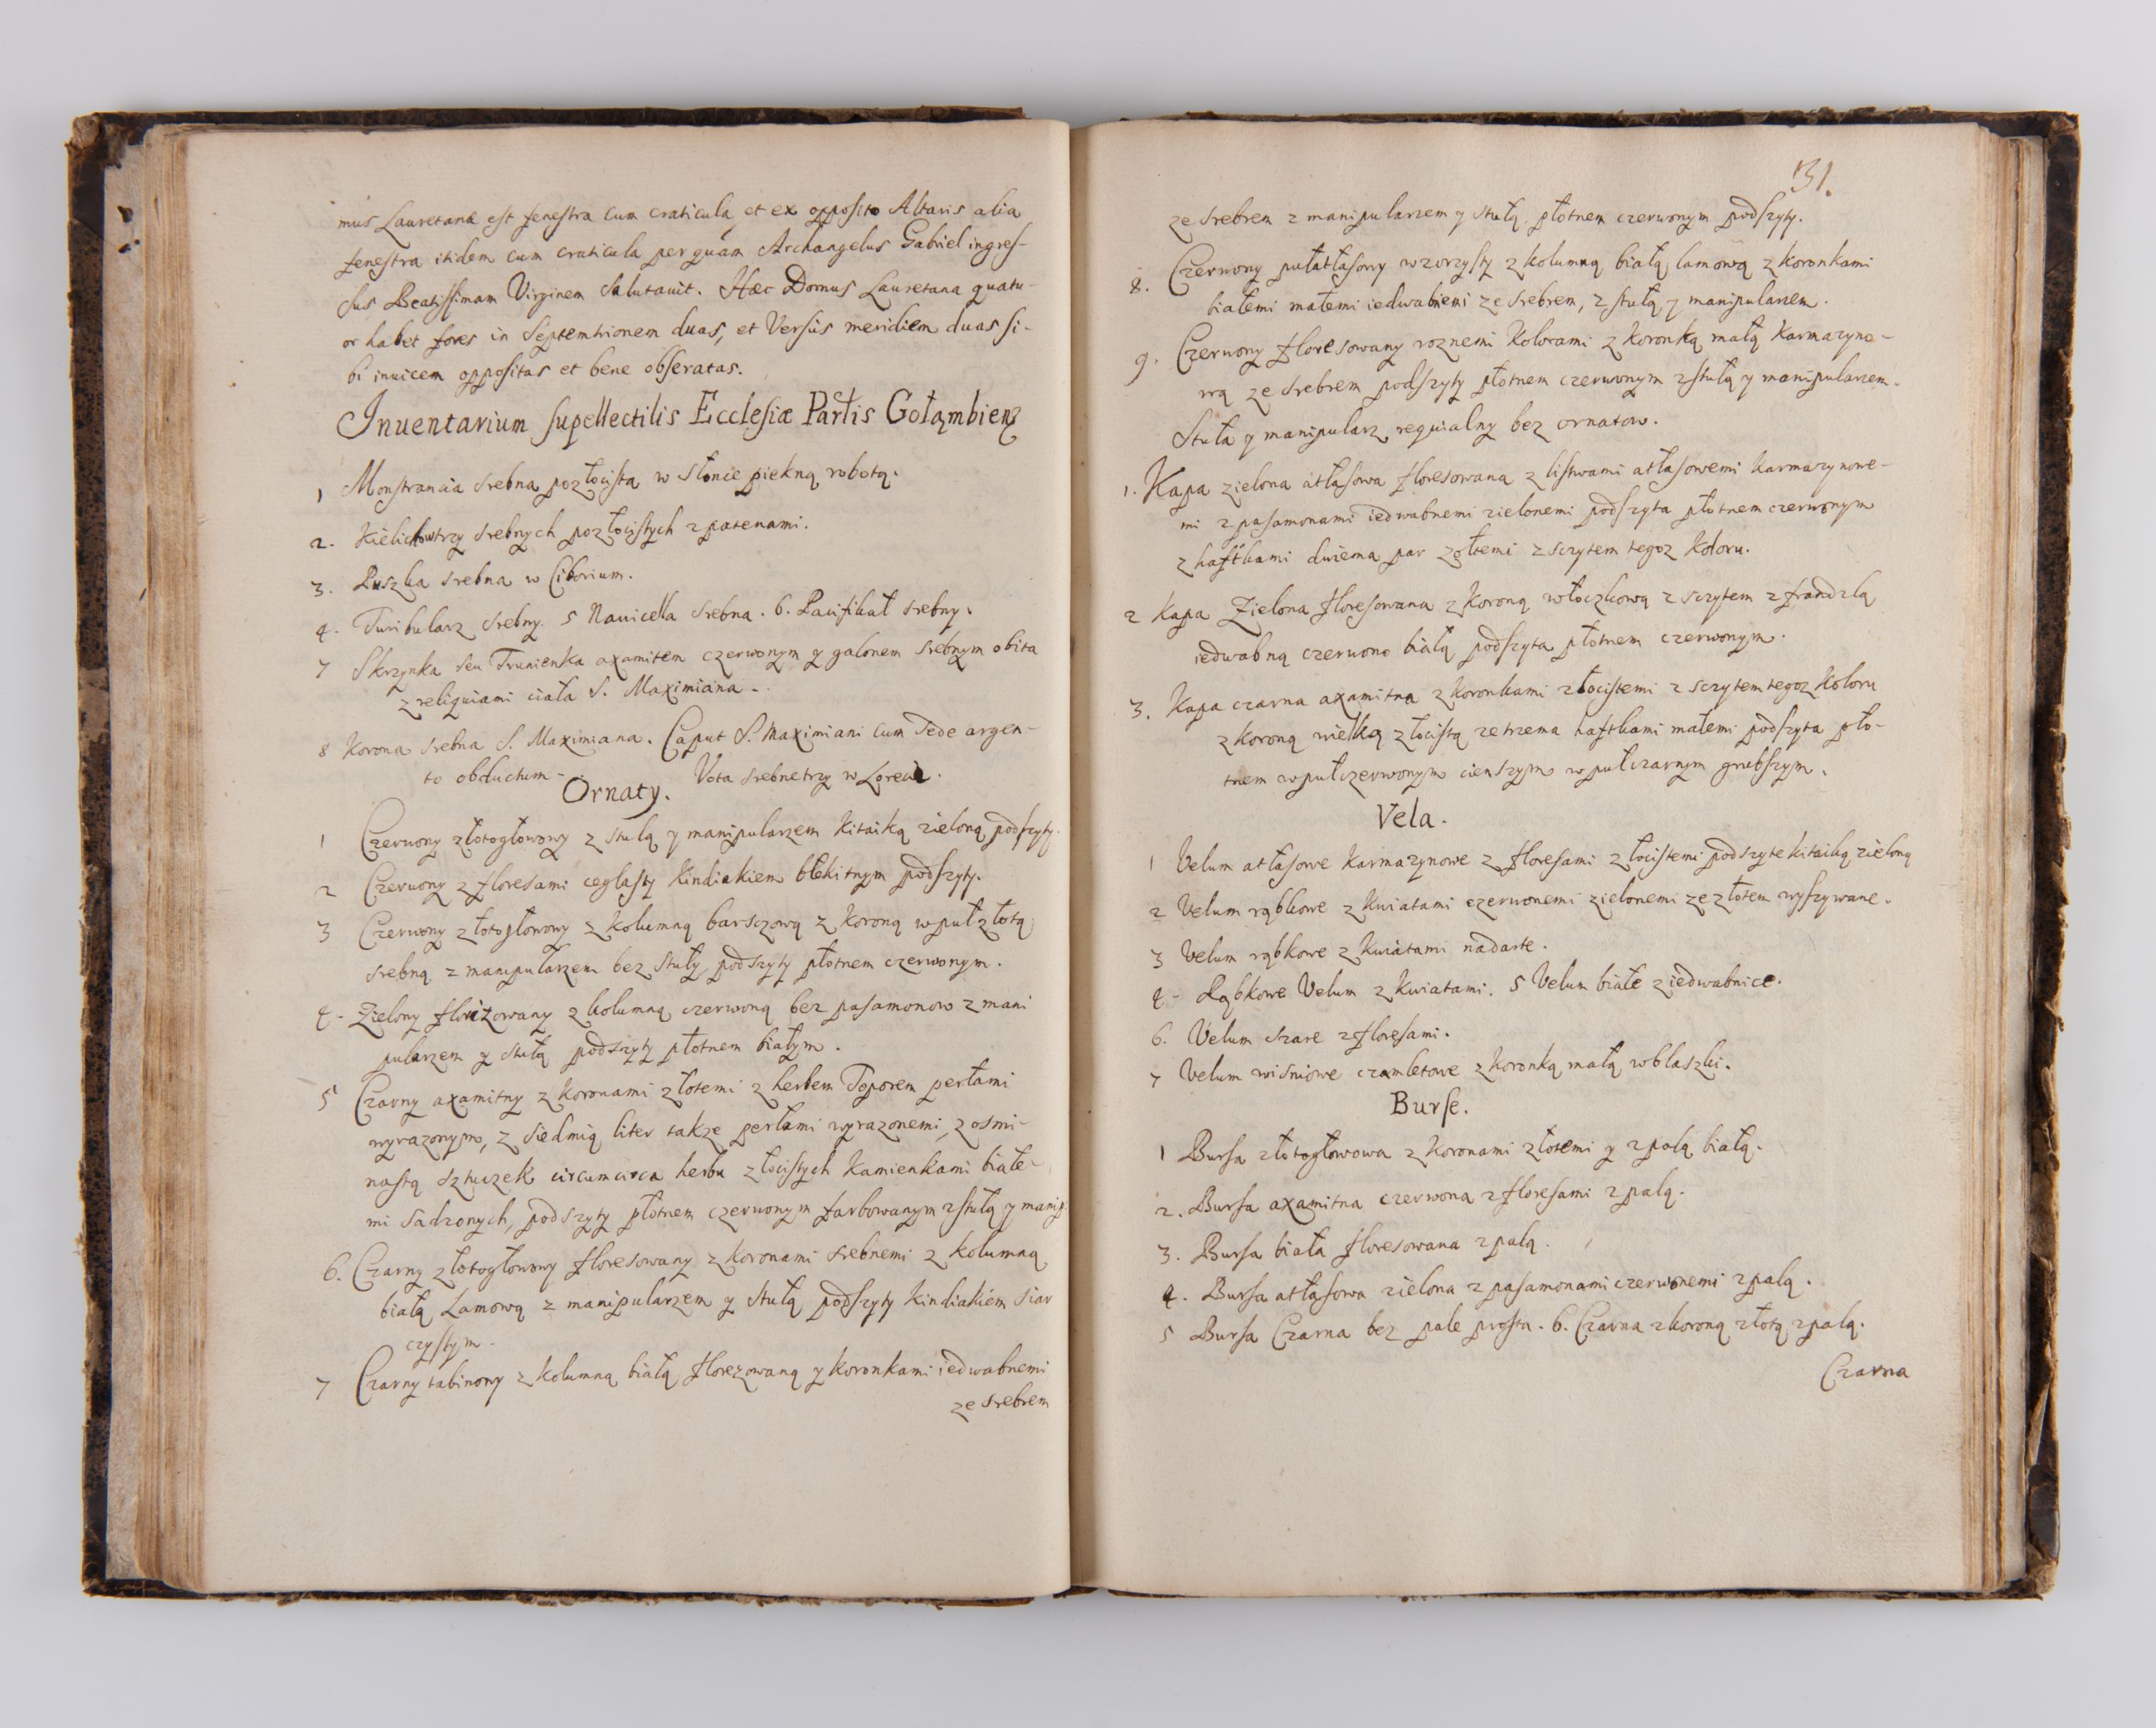 mus Lauretanæ est fenestra cum craticula, et ex opposito Altaris alia
fenestra itidem cum craticula per quam Archangelus Gabriel ingres-
sus Beatissimam Virginem salutavit. Hæc Domus Lauretana quatu-
or habet fores in Septemtrionem duas, et Versus meridiem duas si-
bi invicem oppositas et bene obseratas.
Inventarium supellectilis Ecclesiæ Partis Gołąmbien
1 Monstrancia srebna pozłocista w słonce piekną robotą.
2. Kielichow trzy srebnych pozłocistych z patenami.
3. Puszka srebna w Ciborium.
4. Turibularz srebny. 5 Navicella srebna. 6. Pacifikał srebny.
7 Skrzynka seu Trunienka axamitem czerwonym y galonem srebnym obita
z reliquiami ciała S. Maximiana.
8 Korona srebna S. Maximiana. Caput S. Maximiani cum Sede argen-
to obductum. Vota srebne trzy w Lorecie.
Ornaty.
1 Czerwony złotogłowowy z stułą y manipularzem kitaiką zieloną podszyty.
2 Czerwony z floresami ceglasty kindiakiem błekitnym podszyty.
3 Czerwony złotogłowowy z kolumną barsczową z koroną wpuł złotą
srebną z manipularzem bez stuły podszyty płotnem czerwonym.
4. Zielony florizowany z kolumną czerwoną bez pasamonow z mani
pularzem y stułą podszyty płotnem białym.
5 Czarny axamitny z koronami złotemi z herbem Toporem perłami
wyrazonym, z siedmią liter takze perłami wyrazonemi, z osmi-
nastą sztuczek circumcirca herbu złocistych kamienkami białe-
mi sadzonych, podszyty płotnem czerwonym farbowanym z stułą y manip.
6. Czarny złotogłowowy floresowany z koronami srebnemi z kolumną
białą Lamową z manipularzem y stułą podszyty kindiakiem siar
czystym.
7 Czarny tabinowy z kolumną białą florezowaną y koronkami iedwabnemi
ze srebrem
131.
ze srebrem z manipularzem y stułą płotnem czerwonym podszyty.
8. Czerwony pułatłasowy wzorzysty z kolumną białą lamową z koronkami
białemi małemi iedwabiemi ze srebrem, z stułą y manipularzem.
9. Czerwony floresowany roznemi kolorami z koronką małą karmazyno-
wą ze srebrem podszyty płotnem czerwonym z stułą y manipularzem.
Stuła y manipularz requialny bez ornatow.
1. Kapa zielona atłasowa floresowana z listwami atłasowemi karmazynowe-
mi z pasamonami iedwabnemi zielonemi podszyta płotnem czerwonym
z haftkami dwiema par zołtemi z sczytem tegoz koloru.
2 Kapa Zielona floresowana z koroną włoczkową z sczytem z frandzlą
iedwabną czerwono białą podszyta płotnem czerwonym.
3. Kapa czarna axamitna z koronkami złocistemi z sczytem tegoz koloru
z koroną wielką złocistą ze trzema haftkami małemi podszyta pło-
tnem wpułczerwonym cienszym wpułczarnym grubszym.
Vela.
1 Velum atłasowe karmazynowe z floresami złocistemi podszyte kitaiką zieloną
2 Velum rąbkowe z kwiatami czerwonemi zielonemi ze złotem wyszywane.
3 Velum rąbkowe z kwiatami nadarte.
4 - Rąbkowe Velum z kwiatami. 5 Velum białe z iedwabnice.
6. Velum szare z floresami.
7 Velum wisniowe czamletowe z koronką małą w blaszki.
Burse.
1 Bursa złotogłowowa z koronami złotemi y z palą białą.
2. Bursa axamitna czerwona z floresami z palą.
3. Bursa biała floresowana z palą.
4. Bursa atłasowa zielona z pasamonami czerwonemi z palą.
5 Bursa Czarna bez pale prosta. 6. Czarna z koroną złotą z palą.
Czarna